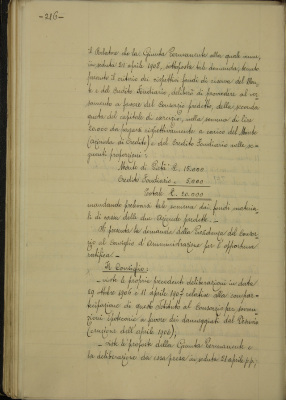 -216-
Il Relatore che la Giunta Permanente alla quale venne,
in seduta 21 aprile 1908, sottoposta tale domanda, tenuto
fondi di riserva del Monte
e del Credito Fondiario, deliberò di provvedere al ver
samento a favore del Consorzio predetto, della seconda
quota del capitale di esercizio, nella somma di Lire
20.000 da pagarsi rispettivamente a carico del Monte
(Azienda di Credito) e del Credito Fondiario nelle se
guenti proporzioni:
Monte di Pietà £. 15.000
Credito Fondiario - 5.000
Totale £. 20.000
mandando prelevare tale somma dai fondi
di cassa delle due aziende predette.
la domanda della Presidenza del Consor
zio al Consiglio d'Amministrazione per l'opportuna
ratifica.
Il Consiglio
- viste le proprie precedenti deliberazioni in data
29 ottobre 1906 e 11 aprile 1907 relative alla compar
tecipazione di questo Istituto al Consorzio per sovven
zioni Ipotecarie a favore dei danneggiati del Vesuvio
(eruzione dell'aprile 1906);
- vista la proposta della Giunta Permanente e
la deliberazione da essa presa in seduta 21 aprile pp;